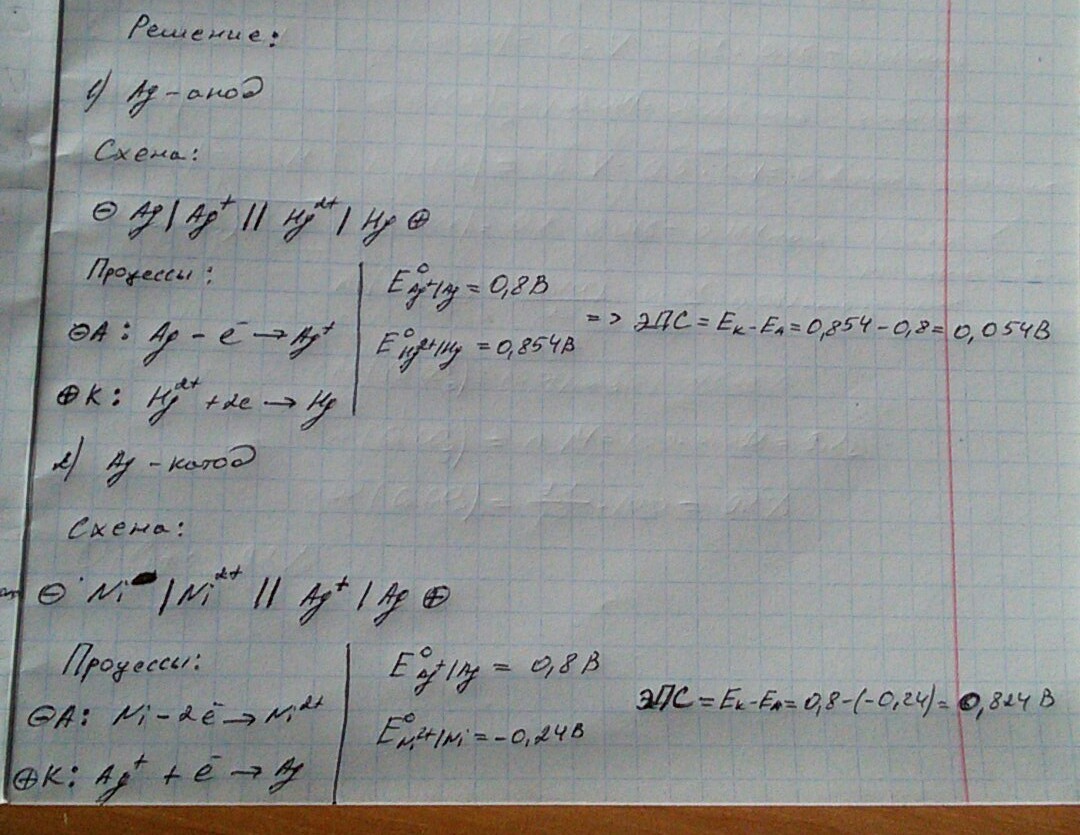 Решение:
1) Ag – анод
Схема:
⊖ Ag | Ag⁺ || Hg²⁺ | Hg ⊕
Процессы:
⊖А: Ag – ē → Ag⁺
⊕К: Hg²⁺ + 2e → Hg
E°Ag⁺/Ag = 0,8В
E°Hg²⁺/Hg = 0,854В
=> ЭДС = Eк – Eа = 0,854 – 0,8 = 0,054В
2) Ag – катод
Схема:
⊖ Ni | Ni²⁺ || Ag⁺ | Ag ⊕
Процессы:
⊖А: Ni – 2ē → Ni²⁺
⊕К: Ag⁺ + ē → Ag
E°Ag⁺/Ag = 0,8 В
E°Ni²⁺/Ni = –0,24В
ЭДС = Eк – Eа = 0,8 – (–0,24) = 0,824 В